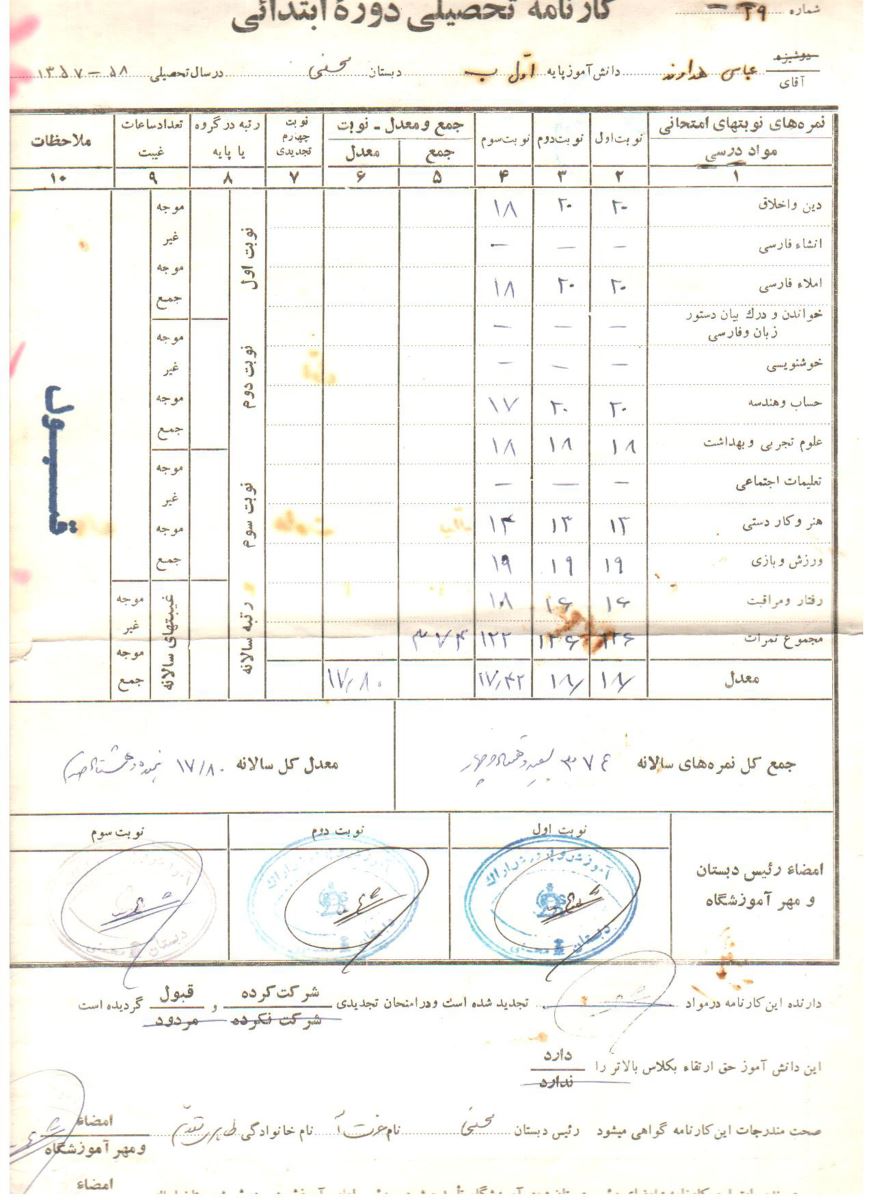 کارنامه تحصیلی دورهٔ ابتدائی
شماره ۲۹
دوشیزه
آقای عباس هداوند دانش آموز پایه اول ب دبستان محسنی در سال تحصیلی ۵۸ - ۱۳۵۷
نمره‌های نوبتهای امتحانی مواد درسی نوبت اول نوبت دوم نوبت سوم جمع و معدل ـ نوبت جمع معدل نوبت چهارم تجدیدی رتبه در گروه یا پایه تعداد ساعات غیبت ملاحظات
۱ ۲ ۳ ۴ ۵ ۶ ۷ ۸ ۹ ۱۰
دین و اخلاق ۲۰ ۲۰ ۱۸
انشاء فارسی — — —
املاء فارسی ۲۰ ۲۰ ۱۸
خواندن و درك بیان دستور زبان و فارسی — — —
خوشنویسی — — —
حساب و هندسه ۲۰ ۲۰ ۱۷
علوم تجربی و بهداشت ۱۸ ۱۸ ۱۸
تعلیمات اجتماعی — — —
هنر و کار دستی ۱۳ ۱۳ ۱۴
ورزش و بازی ۱۹ ۱۹ ۱۹
رفتار و مراقبت ۱۶ ۱۶ ۱۸
مجموع نمرات ۱۲۶ ۱۲۶ ۱۲۲ ۳۷۴
معدل ۱۸/ ۱۸/ ۱۷/۴۲ ۱۷/۸۰
نوبت اول موجه غیر موجه جمع
نوبت دوم موجه غیر موجه جمع
نوبت سوم موجه غیر موجه جمع
رتبه سالانه غیبتهای سالانه موجه غیر موجه جمع
قبول
جمع کل نمره‌های سالانه ۳۷۴ سیصد و هفتاد و چهار
معدل کل سالانه ۱۷/۸۰ هفده و هشتاد صدم
امضاء رئیس دبستان و مهر آموزشگاه
نوبت اول نوبت دوم نوبت سوم
آموزش و پرورش اراک
دبستان محسنی
دارنده این کارنامه در مواد تجدید شده است و در امتحان تجدیدی شرکت کرده و قبول گردیده است
شرکت نکرده مردود
این دانش آموز حق ارتقاء بکلاس بالاتر را دارد
ندارد
صحت مندرجات این کارنامه گواهی میشود رئیس دبستان محسنی نام عزت آ نام خانوادگی امضاء
و مهر آموزشگاه
امضاء